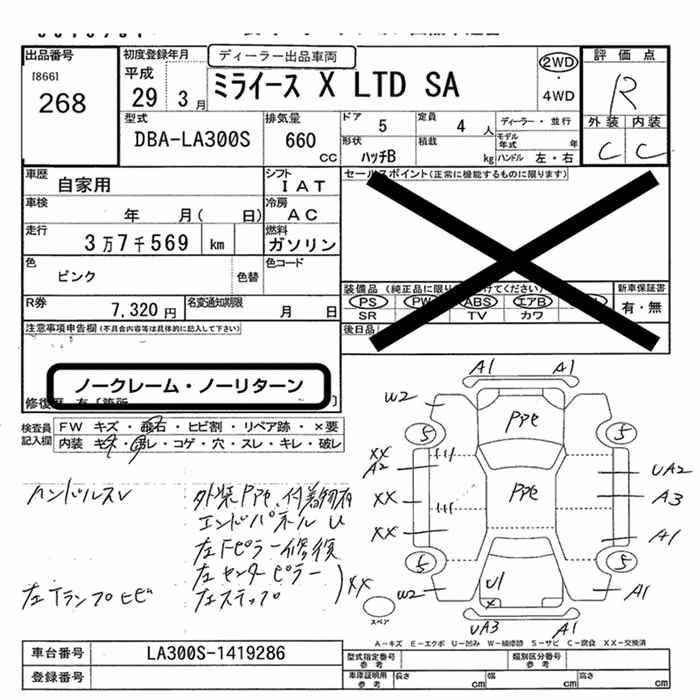 出品番号
[866]
268
初度登録年月
平成
29 3月
ディーラー出品車両
ミライース X LTD SA
2WD
4WD
評価点
R
外装 内装
C C
型式
DBA-LA300S
排気量
660
cc
ドア
5
定員
4 人
ディーラー・並行
モデル年式 年
形状
ハッチB
積載
kg
ハンドル 左・右
車歴
自家用
シフト
IAT
車検
年 月( 日)
冷房
AC
走行
3万7千569 km
燃料
ガソリン
色
ピンク
色替
色コード
R券
7,320円
名変通知期限
月 日
セールスポイント(正常に機能するものに限ります)
装備品
PS PW ABS エアB
SR TV カワ
新車保証書
有・無
後日品
注意事項申告欄(不具合内容等は具体的に記入して下さい)
ノークレーム・ノーリターン
検査員
記入欄
FW キズ・飛石・ヒビ割・リペア跡・×要
内装 キズ・汚レ・コゲ・穴・スレ・キレ・破レ
ハンドルスレ
エンドパネル U
左Fピラー修復
左センターピラー
左ステップ
XX
左Tランプヒビ
A1 A1
W2
5 5
PPC
PPC
XX
A2
XX
XX
UA2
A3
A1
5 5
W2
U1
X
A1
UA3 A1
スペア
A-キズ E-エクボ U-凹み W-補修跡 S-サビ C-腐食 XX-交換済
車台番号
LA300S-1419286
登録番号
型式指定番号
参考
類別区分番号
参考
車庫証明用
参考
長さ cm
幅 cm
高さ cm